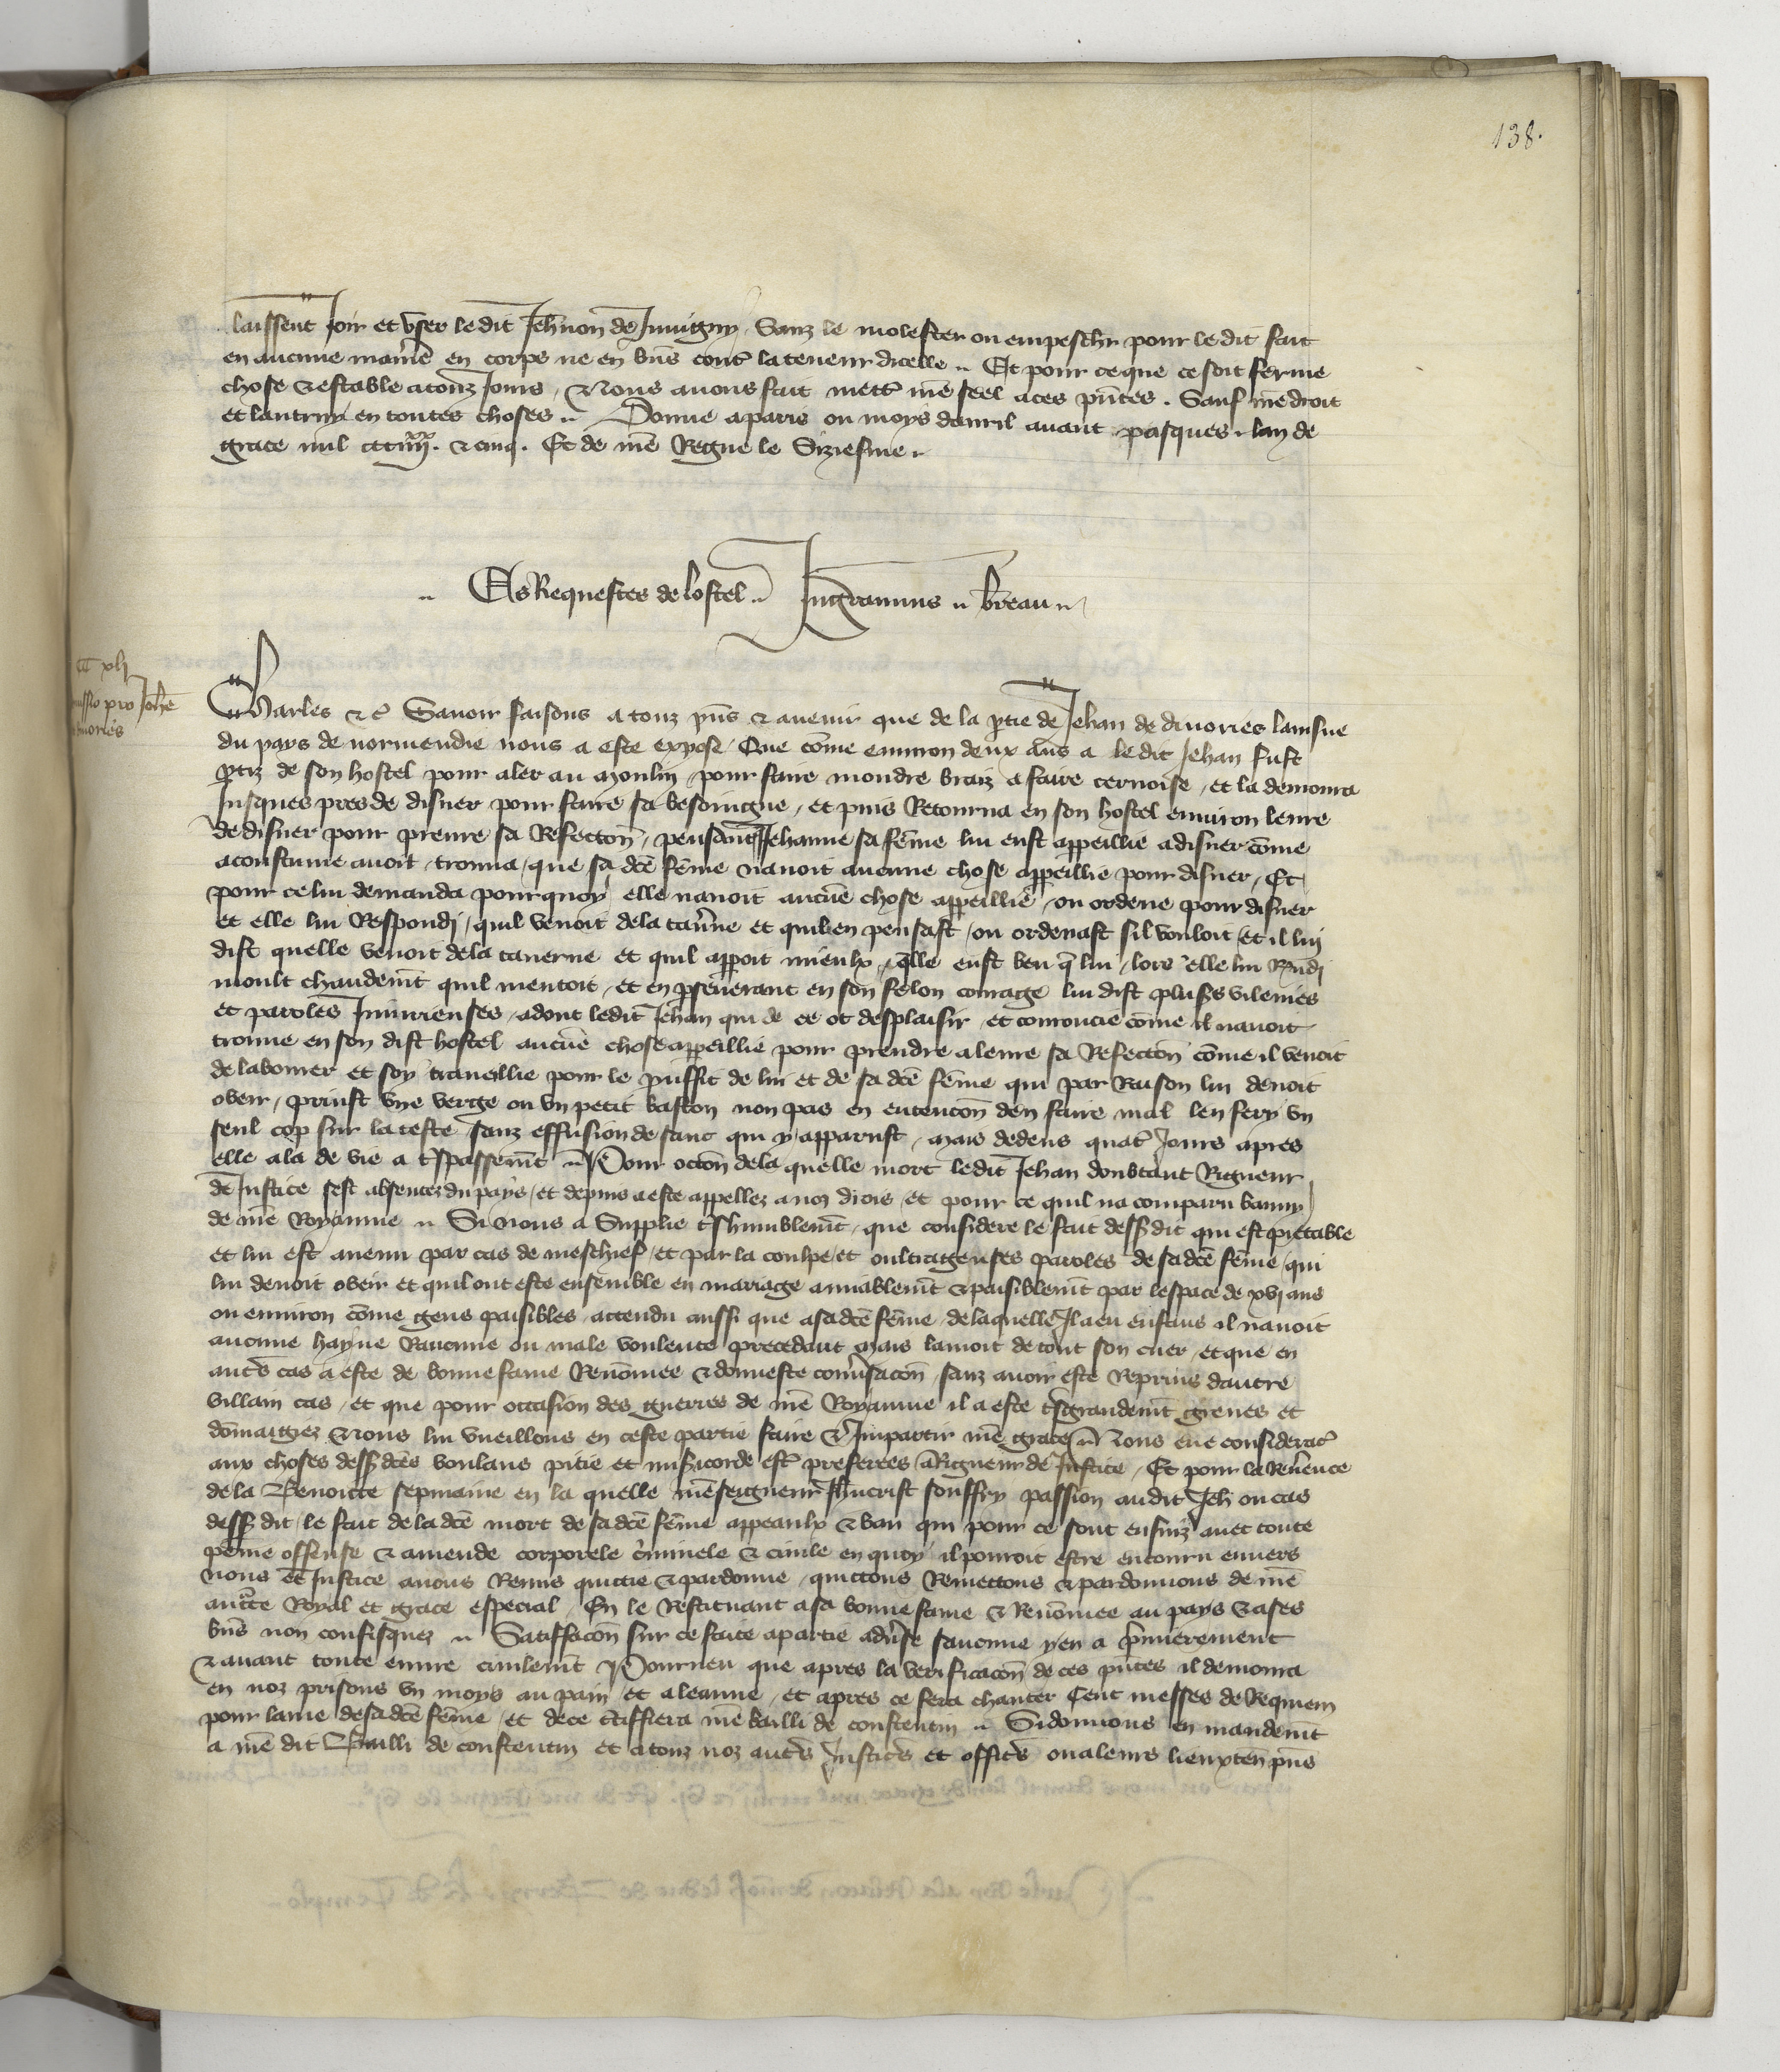 138.
laissent Joir et user le dit Jehnon de Juuigny Sanz le molester ou empeschr pour le dit fait
en aucune maniere en corps ne en biens contr la teneur dicelle .. Et pour ce que ce soit ferme
chose & estable a touz Jours , Nous auons fait mettr nre seel a ces pntes . Sauf nre droit
et lautruy en toutes choses .. Donne a paris ou moys dauril auant pasques lan de
grace mil CCC IIIIxx & cinq . Et de nre Regne le Siziesme ..
.. Es Requestes de lostel .. Ingrannus .. breau ..
CC xlj
pro Johe
Charles &c Sauoir faisons a touz pns & auenir que de la ptie de Jehan de diuories lainsne
du pays de normendie nous a este expose / Que come enuiron deux ans a le dit Jehan fust
ptiz de son hostel pour aler au moulin pour faire moudre braiz a faire ceruoise , et la demoura
Jusques pres de disner pour faire sa besoingne , et puis Retourna en son hostel enuiron leure
de disner pour prenre sa Refection , pensant q Jehanne sa feme lui eust appeillie a disner come
acoustume auoit , trouua que sa dce feme nauoit aucune chose appeillie pour disner , Et
pour ce lui demanda pourquoy elle nauoit aucune chose appeillie ou ordene pour disner
et elle lui Respondi , quil venoit de la tauerne et quil en pensast ou ordenast sil vouloit , et il lui
dist quelle venoit de la tauerne et quil appoit mieulx qlle eust beu q lui , lors elle lui Rndi
moult chaudemt quil mentoit , et en pseuerant en son felon courage lui dist pluss vilenies
et paroles Iniurieuses , adont ledit Jehan qui de ce ot desplaisir et couroucie come il nauoit
trouue en son dist hostel aucune chose appeillie pour prendre a leure sa Refection come il venoit
de labourer et soy traueillie pour le prouffit de lui et de sa dce feme qui par Raison lui deuoit
obeir , prinst vne verge ou vn petit baston non pas en entencon den faire mal len fery vn
seul cop sur la teste sanz effusion de sanc qui y apparust , mais dedens quatr Jours apres
elle ala de vie a tspassemt .. Pour occon de la quelle mort ledit Jehan doubtant Rigueur
de Justice sest absentez du pays , et depuis a este appellez a noz drois , et pour ce quil na comparu banny
de nre Royaume .. Si nous a Supplie tshumblemt , que considere le fait dessdit qui est pietable
et lui est auenu par cas de meschief et par la coulpe et oultrageuses paroles de sa dce feme , qui
lui deuoit obeir et quil ont este ensemble en mariage amiablemt & paisiblemt par lespace de xvj ans
ou enuiron come gens paisibles , attendu aussi que a sa dce feme , de laquelle Il a eu enfans il nauoit
aucune hayne Rancune ou male voulente precedant mais lamoit de tout son cuer , et que en
autrs cas a este de bonne fame Renomee & donneste conusacon , sanz auoir este Reprins dautre
villain cas , et que pour occasion des guerres de nre Royaume il a este tsgrandemt greues et
domaigiez & Nous lui vueillons en ceste partie faire & Impartir nre grace .. Nous eue consideracon
aux choses dessdces voulans pitie et misicorde estr preferees a Rigueur de Justice , Et pour la Reuence
de la Benoitte sepmaine en la quelle nre seigneur Jhucrist souffry passion au dit Jeh ou cas
dessdit , le fait de la dce mort de sa dce feme appeaulx & ban qui pour ce sont ensuiz auec toute
peine offense & amende corporele criminele & ciuile en quoy il pourroit estre encouru enuers
nous et Justice auons Remis quittie & pardonne , quittons Remettons & pardonnons de nre
auctte Royal et grace especial , En le Restituant a sa bonne fame & Renomee au pays & a ses
biens non confisquez .. Satiffacon sur ce faite a partie aduse saucune y en a pmierement
& auant toute euure ciuilemt Pourueu que apres la verificacon de ces pntes il demoura
en noz prisons vn moys au pain et a leaue , et apres ce fera chanter Cent messes de Requiem
pour lame de sa dce feme , et de ce ctiffiera nre bailli de coustentin .. Si donnons en mandemt
a nre dit Bailli de coustentin et a touz noz autrs Justicrs et officrs ou a leurs lieuxten pns